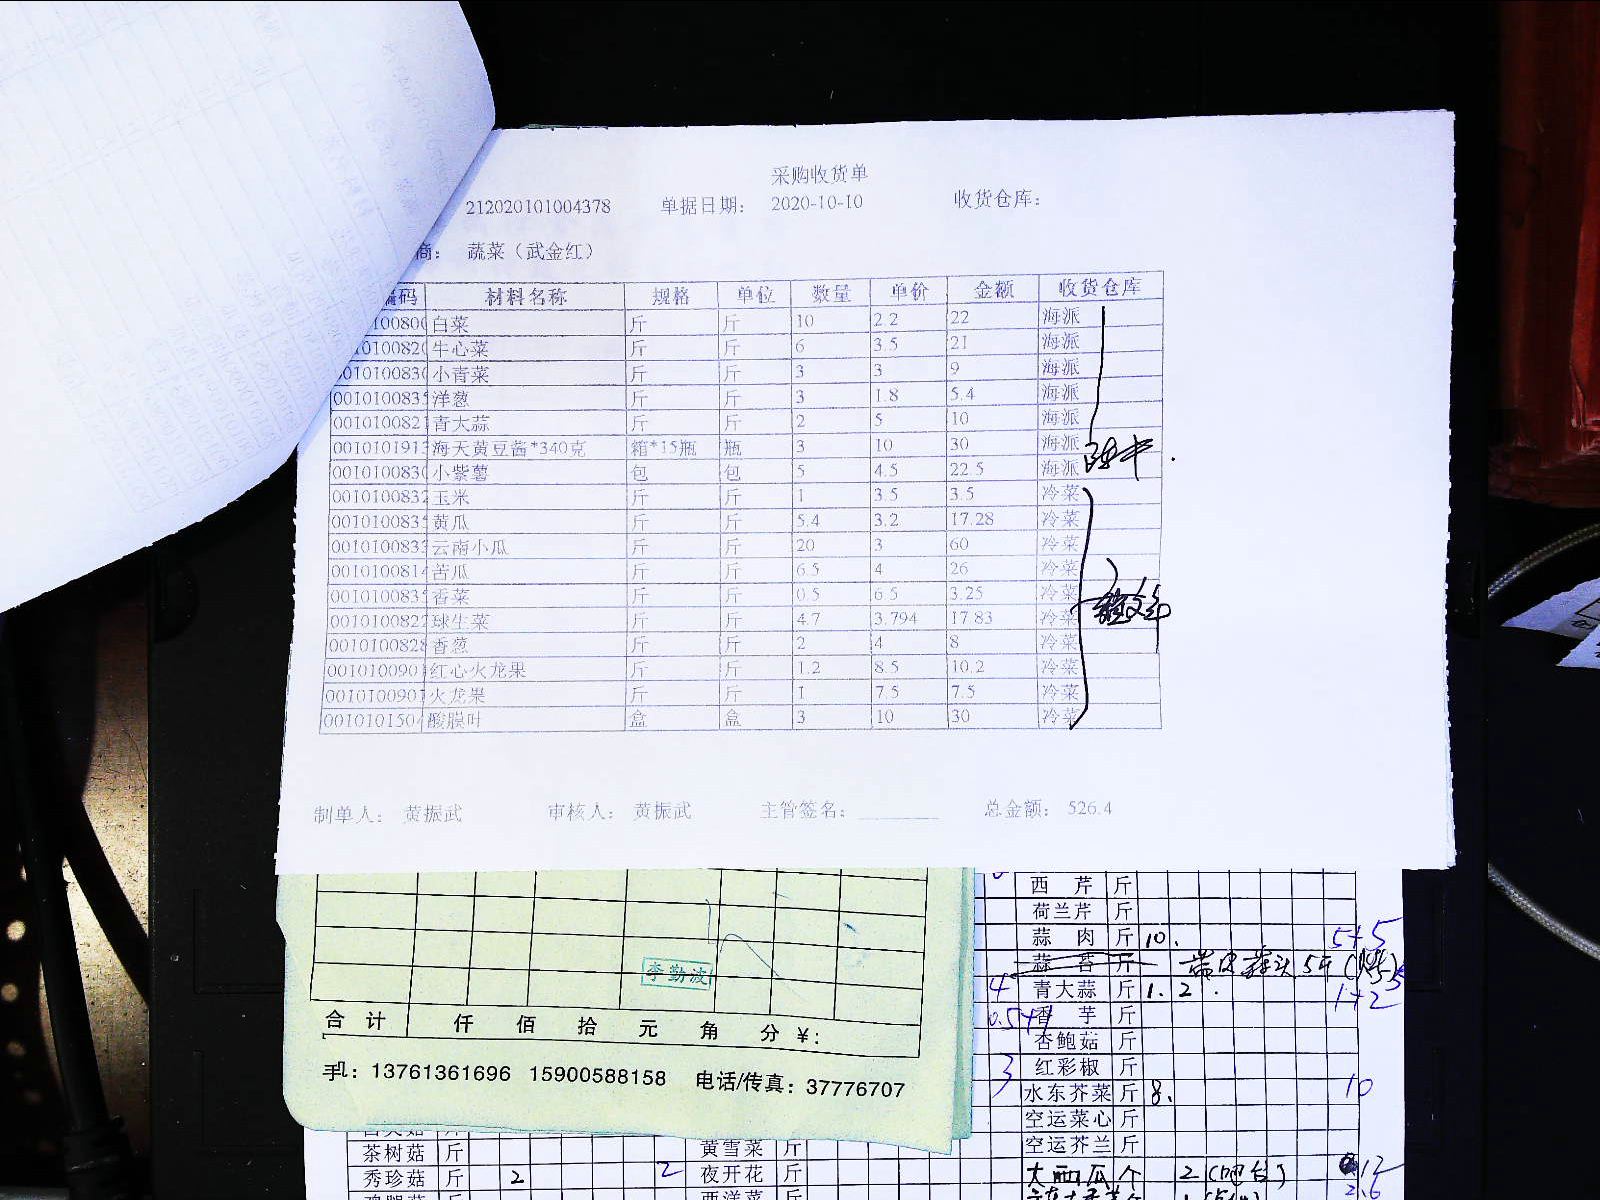 采购收货单
212020101004378 单据日期： 2020-10-10 收货仓库：
商： 蔬菜（武金红）
编码 材料名称 规格 单位 数量 单价 金额 收货仓库
0100800 白菜 斤 斤 10 2.2 22 海派
010100820 牛心菜 斤 斤 6 3.5 21 海派
0010100830 小青菜 斤 斤 3 3 9 海派
001010083 洋葱 斤 斤 3 1.8 5.4 海派
001010082 青大蒜 斤 斤 2 5 10 海派
001010191 海天黄豆酱*340克 箱*15瓶 瓶 3 10 30 海派
001010083 小紫薯 包 包 5 4.5 22.5 海派
001010083 玉米 斤 斤 1 3.5 3.5 冷菜
001010083 黄瓜 斤 斤 5.4 3.2 17.28 冷菜
001010083 云南小瓜 斤 斤 20 3 60 冷菜
001010081 苦瓜 斤 斤 6.5 4 26 冷菜
001010083 香菜 斤 斤 0.5 6.5 3.25 冷菜
001010082 球生菜 斤 斤 4.7 3.794 17.83 冷菜
001010082 香葱 斤 斤 2 4 8 冷菜
001010090 红心火龙果 斤 斤 1.2 8.5 10.2 冷菜
001010090 火龙果 斤 斤 1 7.5 7.5 冷菜
001010150 酸膜叶 盒 盒 3 10 30 冷菜
制单人： 黄振武 审核人： 黄振武 主管签名： 总金额： 526.4
李勤波
合计 仟 佰 拾 元 角 分 ￥：
手机：13761361696 15900588158 电话/传真：37776707
西芹 斤
荷兰芹 斤
蒜肉 斤 10. 5+5
蒜苔 斤
4 青大蒜 斤 1. 2. 1+2
香芋 斤
杏鲍菇 斤
3 红彩椒 斤
水东芥菜 斤 8. 10
空运菜心 斤
空运芥兰 斤
大西瓜 个 2（吧台） 12
茶树菇 斤 黄雪菜 斤
秀珍菇 斤 2 2 夜开花 斤
西洋菜